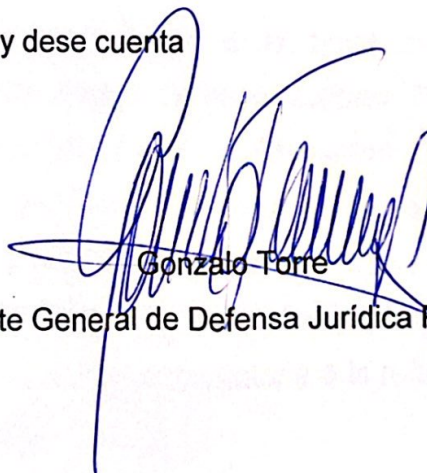 y dese cuenta
Gonzalo Torre
te General de Defensa Jurídica